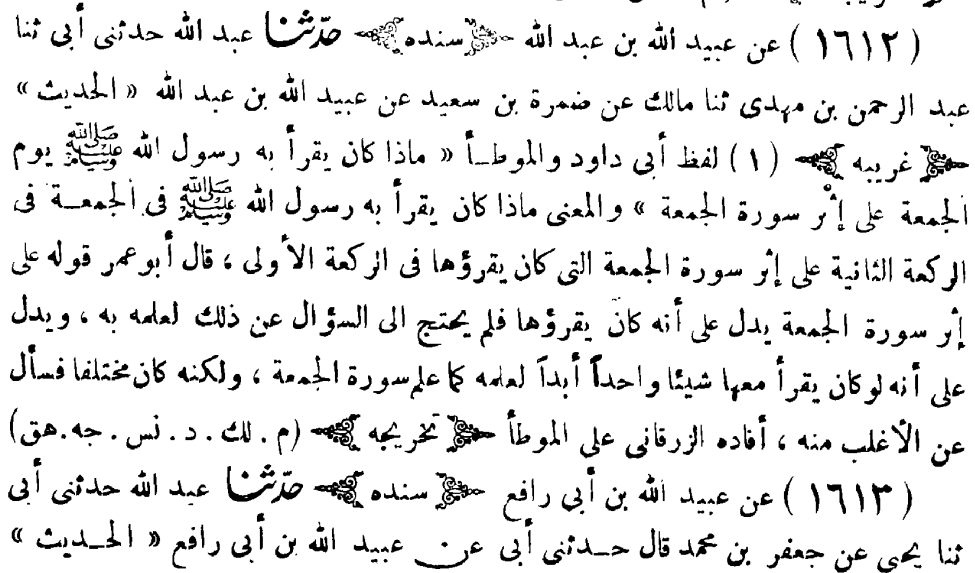 ( ١٦١٢ ) عن عبيد الله بن عبد الله ﴿ سنده ﴾ حدّثنا عبد الله حدثنى أبى ثنا
عبد الرحمن بن مهدى ثنا مالك عن ضمرة بن سعيد عن عبيد الله بن عبد الله « الحديث »
﴿ غريبه ﴾ ( ١ ) لفظ أبى داود والموطـأ « ماذا كان يقرأ به رسول الله ﷺ يوم
الجمعة على إثْر سورة الجمعة » والمعنى ماذا كان يقرأ به رسول الله ﷺ فى الجمعـة فى
الركعة الثانية على إثر سورة الجمعة التى كان يقرؤها فى الركعة الأولى ، قال أبو عمر قوله على
إثر سورة الجمعة يدل على أنه كان يقرؤها فلم يحتج الى السؤال عن ذلك لعلمه به ، ويدل
على أنه لو كان يقرأ معها شيئا واحداً أبداً لعلمه كما علم سورة الجمعة ، ولكنه كان مختلفا فسأل
عن الأغلب منه ، أفاده الزرقانى على الموطأ ﴿ تخريجه ﴾ (م . لك . د . نس . جه . هق)
( ١٦١٣ ) عن عبيد الله بن أبى رافع ﴿ سنده ﴾ حدّثنا عبد الله حدثنى أبى
ثنا يحيى عن جعفر بن محمد قال حـدثنى أبى عن عبيد الله بن أبى رافع « الحـديث »